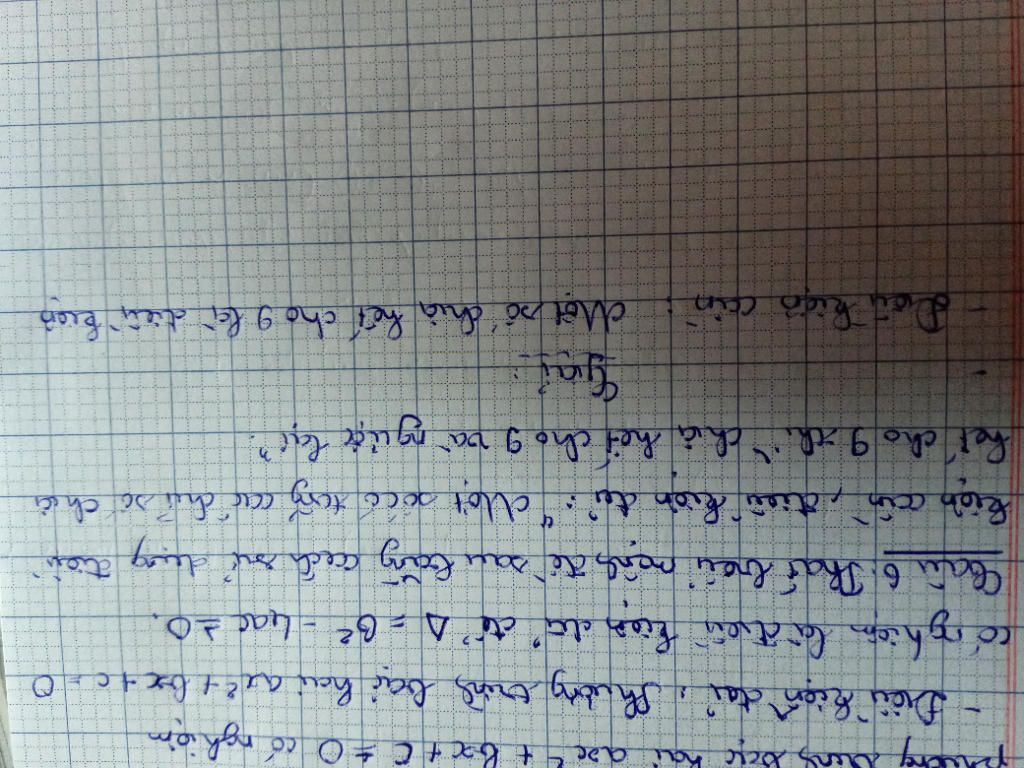 phương trình bậc hai ax² + bx + c = 0 có nghiệm
- Điều kiện đủ: Phương trình bậc hai ax² + bx + c = 0
có nghiệm là điều kiện đủ để Δ = b² - 4ac ≥ 0.
Bài 6: Phát biểu mệnh đề sau bằng cách sử dụng điều
kiện cần, điều kiện đủ: "Một số có tổng các chữ số chia
hết cho 9 thì chia hết cho 9 và ngược lại".
Giải:
- Điều kiện cần: Một số chia hết cho 9 là điều kiện